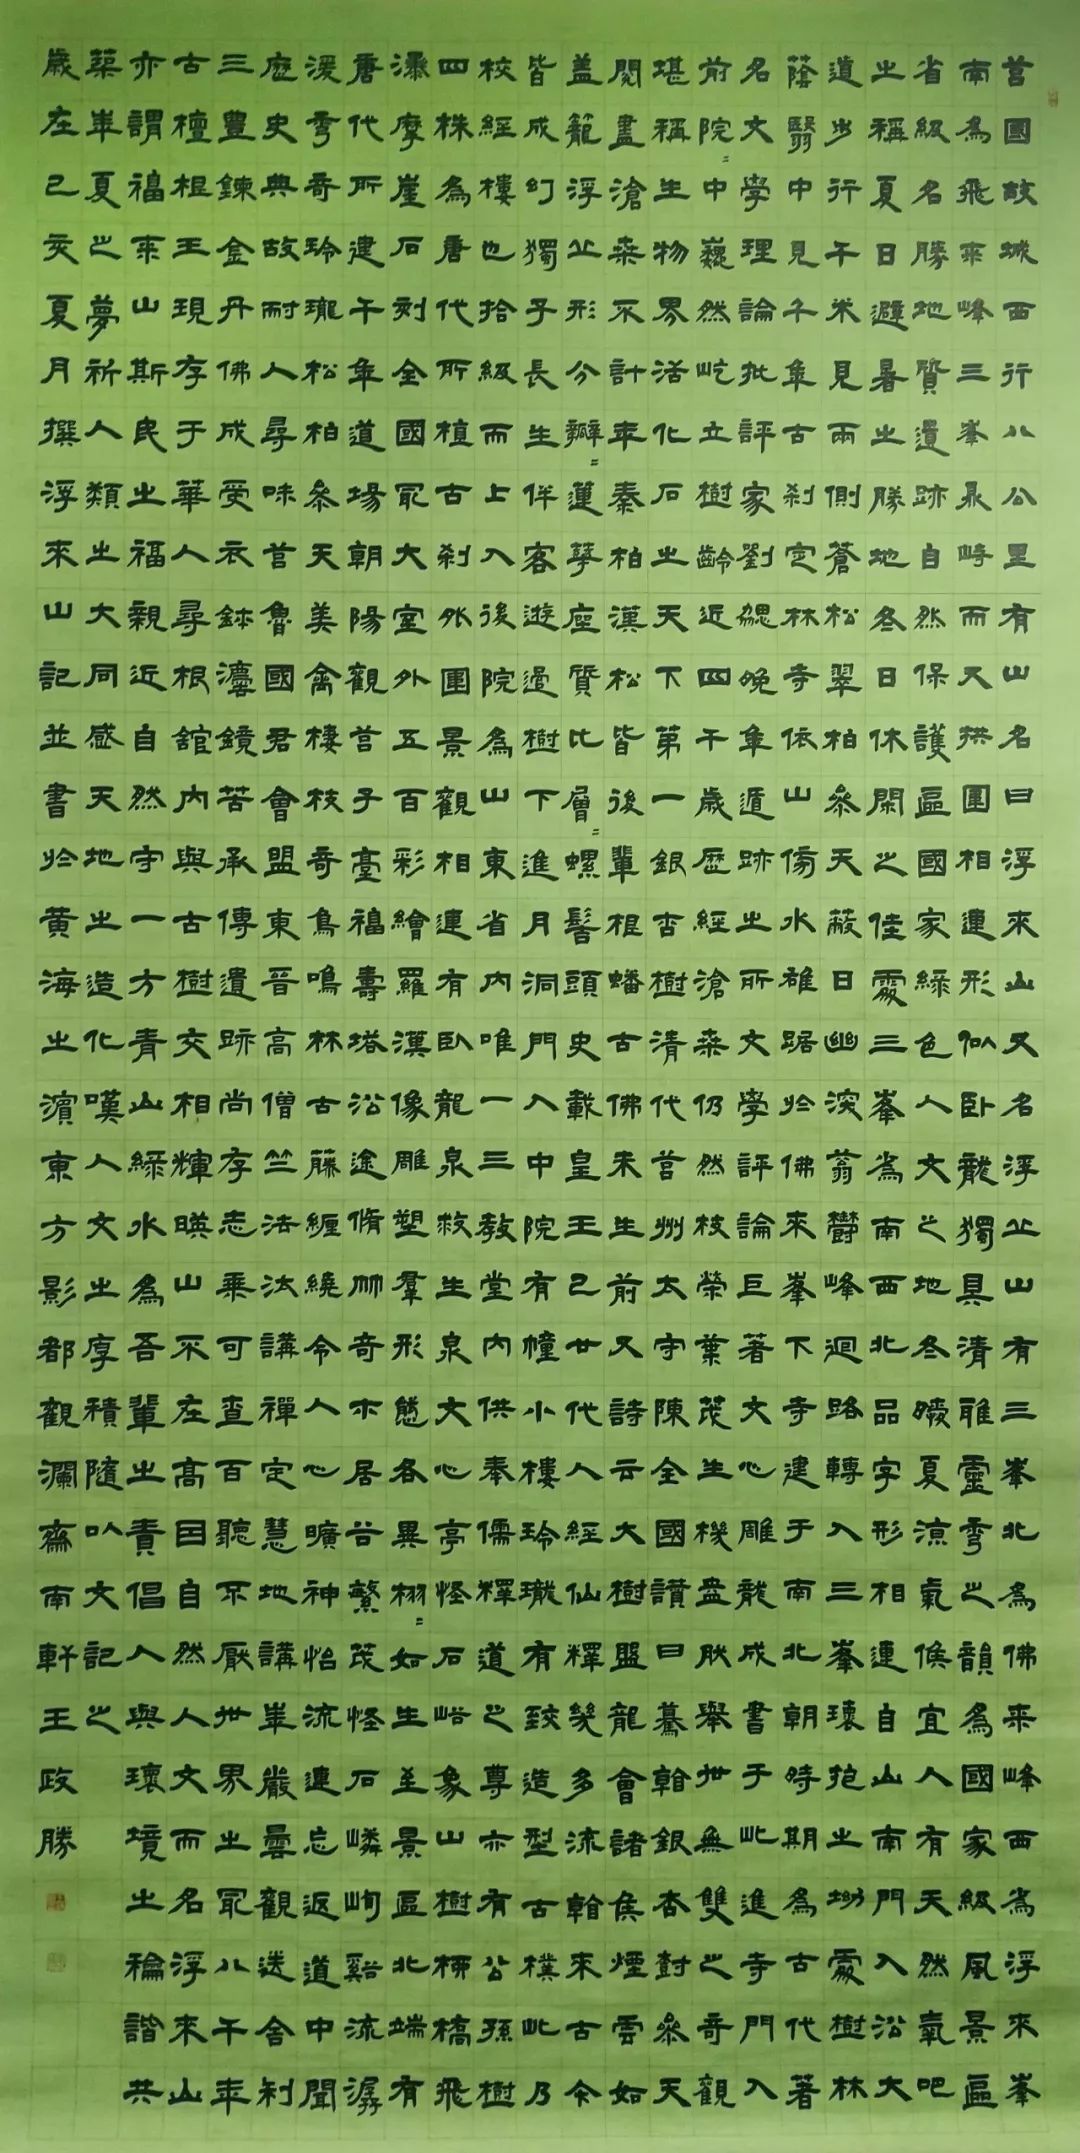 莒國故城西行八公里有山名曰浮來山又名浮丘山有三峯北為佛来峰西為浮来峯
南為飛来峰三峯鼎峙而又拱圍相連形似卧龍獨具清雅靈秀之韻為國家級風景區
省級名勝地質遺跡自然保護區國家綠色人文之地冬暖夏涼氣侯宜人有天然氧吧
之稱夏日避暑之勝地冬日休閑之佳處三峯為南西北品字形相連自山南門入沿大
道步行千米見兩側蒼松翠柏參天蔽日幽深蓊鬱峰迴路轉入三峯環抱之坳處樹林
蔭翳中見千年古刹定林寺依山傍水雄踞於佛來峯下寺建于南北朝時期為古代著
名文學理論批評家劉勰晚年遁跡之所文學評論巨著文心雕龍成書于此進寺門入
前院=中巍然屹立樹齡近四千歲歷經滄桑仍然枝榮葉茂生機盎肰舉世無雙之奇觀
堪稱生物界活化石之天下第一銀杏樹清代莒州太守陳全國讚曰驀翰銀杏對參天
閱盡滄桑不計年秦柏漢松皆後輩根蟠古佛未生前又詩云大樹盤龍會諸侯煙雲如
蓋籠浮丘形分瓣=蓮華座質比層=螺髻頭史載皇王已廿代人經仙釋幾多流翰來古今
皆成幻獨子長生伴客遊過樹下進月洞門入中院有幢小樓玲瓏有致造型古樸此乃
校經樓也拾級而上入後院為山東省内唯一三教堂内供奉儒釋道之尊亦有公孫樹
四株為唐代所植古刹外圍景觀相連有卧龍泉救生泉文心亭怪石峪象山樹栁橋飛
瀑摩崖石刻全國最大室外五百彩繪羅漢像雕塑羣形態各異栩=如生至景區北端有
唐代所建千年道場朝陽觀莒子臺福壽塔沿途脩竹奇木居谷繁茂怪石嶙峋谿流潺
湲秀奇玲瓏松柏參天美禽棲枝奇鳥鳴林古藤纏繞令人心曠神怡流連忘返道中聞
歷史典故耐人尋味莒魯國君會盟東晉高僧竺法汰講禪定慧地講華嚴曇觀送舍利
三豊鍊金丹佛成受衣鉢灋鏡苦承傳遺跡尚存志乘可查百聽不厭世界之最八千年
古檀根王現存于華人尋根舘内與古樹交相輝暎山不在高因自然人文而名浮來山
亦謂福來山斯民之福親近自然守一方青山綠水為吾輩之責倡人與環境之穐諧共
築華夏之夢祈人類之大同感天地之造化嘆人文之厚積隨以文記之
歲在己亥夏月撰浮來山記並書於黃海之濱東方影都觀瀾齋南軒王政勝